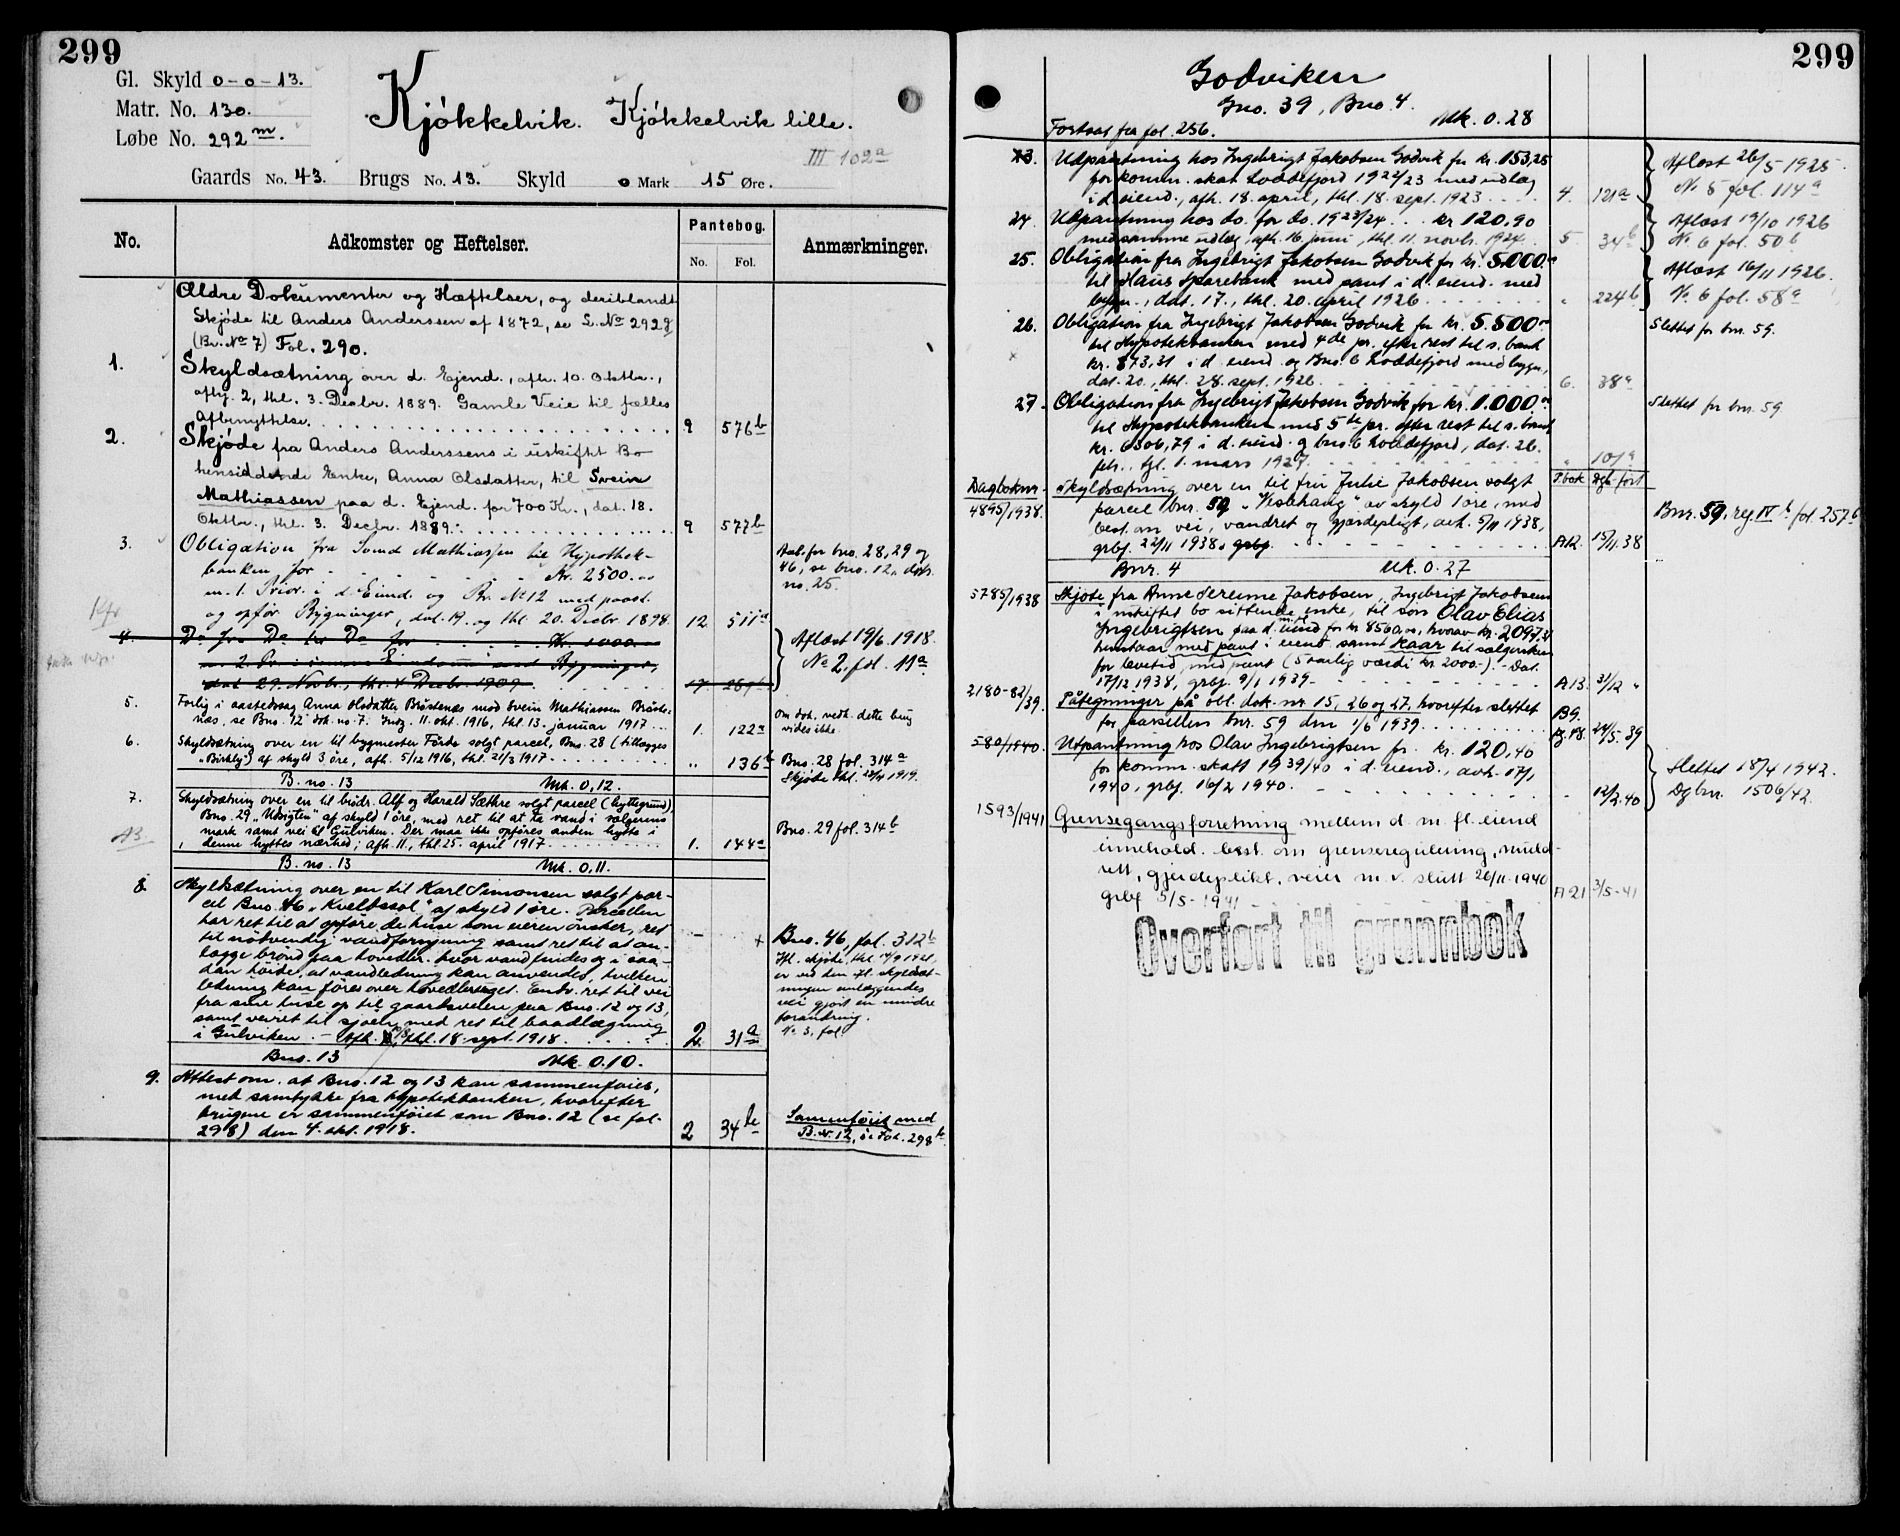 299
Gl. Skyld 0-0-13.
Matr. No. 130.
Løbe No. 292 m.
Kjøkkelvik. Kjøkkelvik lille.
III 102a
Gaards No. 43. Brugs No. 13. Skyld 0 Mark 15 Øre.
No. Adkomster og Heftelser. Pantebog. Anmærkninger.
No. Fol.
Ældre Dokumenter og Hæftelser, og deriblandt
Skjøde til Anders Anderssen af 1872, se L. No 292g
(Br. No 7) Fol. 290.
1. Skyldsætning over d. Ejend., afh. 10. Oktbr.,
afhj. 2, thl. 3. Decbr. 1889. Gamle Veie til fælles
Afbenyttelse. 9 576b
2. Skjøde fra Anders Anderssens i uskiftet Bo
hensiddende Enke, Anna Olsdatter, til Svein
Mathiassen paa d. Ejend. for 700 Kr., dat. 18.
Oktbr., thl. 3. Decbr. 1889. 9 577b
3. Obligation fra Svend Mathiassen til Hypothek-
banken for Kr. 2500.00
m. 1. Prior. i d. Eiend. og Br. No 12 med paast.
og opfør. Bygninger, dat. 19. og thl. 20. Decbr 1898. 12. 511a
Aab. for bno. 28, 29 og
46, se bno. 12, dok.
no. 25.
4. Do fra Do til Do for Kr. 1000.
m. 2 Pr. i samme Eiendom med Bygninger,
dat. 29. Novbr., thl. 4 Decbr. 1909. 17
Aflæst 19/6. 1918.
No 2, fol. 11a
5. Forlig i aastedssag Anna Olsdatter Bröstenæs mod Svein Mathiassen Bröste-
næs, se Bno. 12 dok. no. 7. Indg. 11. okt. 1916, thl. 13. januar 1917. 1. 122a
Om dok. vedk. dette brug
vides ikke.
6. Skyldsætning over en til bygmester Förde solgt parcel, Bno. 28 (tillægges
"Birkely") af skyld 3 øre, afh. 5/12 1916, thl. 21/3 1917 " 136b
Bno. 28 fol. 314a
B. no. 13 Mk. 0,12.
7. Skyldsætning over en til brødr. Alf og Harald Sæthre solgt parcel (hyttegrund),
Bno. 29 "Udsigten" af skyld 1 øre, med ret til at ta vand i sælgerens
mark samt vei til Gulviken. Der maa ikke opføres anden hytte i
denne hyttes nærhed; afh. 11., thl. 25. april 1917 1. 144a
Bno. 29 fol. 314b
B. no. 13 Mk. 0,11.
8. Skyldsætning over en til Karl Simonsen solgt par-
cel Bno. 46 "Kveldssol" af skyld 1 øre. Parcellen
har ret til at opføre de huse som eieren ønsker, ret
til nødvendig vandforsyning samt ret til at an-
lægge brønd paa hovedbr. hvor vand findes og i saa-
dan høide, at vandledning kan anvendes, hvilken
ledning kan føres over hovedbruget. Endv. ret til vei
fra sine huse op til gaardsveien paa Bno. 12 og 13,
samt veiret til sjøen med ret til baadlægning
i Gulviken. — Afh. thl. 18. sept. 1918. 2. 31a
Bno. 46, fol. 312b
Ifl. skjøte, thl.
er ved den ifl. skyldsæt-
ningen anlæggendes
vei gjort en mindre
forandring.
No 3, fol.
Bno. 13 Mk. 0.10.
9. Attest om, at Bno. 12 og 13 kan sammenføies,
med samtykke fra Hypotekbanken, hvorefter
brugene er sammenføiet som Bno. 12 (se fol.
298) den 4. okt. 1918. 2 34b
Sammenføiet med
B. nr 12, se Fol. 298b
299
Godviken
Gno. 39, Bno 4.
Mk. 0.28
Fortsat fra fol. 256.
23. Udpantning hos Ingebrigt Jakobsen Godvik for kr. 153,25
for komm. skat Loddefjord 1922/23 med udlæg
i d. eiend., afh. 18. april, thl. 18. sept. 1923 4. 121a
Aflæst 26/5 1925.
No 5 fol. 114a
24. Udpantning hos do. for do. 1923/24 kr 120,90
med samme udlæg, afh. 16. juni, thl. 11. novbr. 1924. 5. 34b
Aflæst 19/10 1926
No 6 fol. 50b
25. Obligation fra Ingebrigt Jakobsen Godvik for kr. 5.000.00
til Haus Sparebank med pant i d. eiend. med
bygn., dat. 17., thl. 20. april 1926 " 224b
Aflæst 16/11 1926.
No 6 fol. 58a
26. Obligation fra Ingebrigt Jakobsen Godvik for kr. 5.500.00
til Hypotekbanken med 4de pr. efter rest til s. bank
kr. 873,31 i d. eiend og Bno. 6 Loddefjord med bygn,
dat. 20., thl. 28. sept. 1926. 6. 38a
Slettet for bnr. 59.
27. Obligation fra Ingebrigt Jakobsen Godvik for kr. 1.000.00
til Hypotekbanken med 5te pr. efter rest til s. bank
kr. 6306,79 i d. eiend. og bno. 6 Loddefjord, dat. 26.
febr., tgl. 1. mars 1927. " 101a
Slettet for bnr. 59
Dagboknr. P.bok Dgb.ført
4895/1938. Skyldsætning over en til fru Julie Jakobsen solgt
parcel bnr. 59, "Vestehaug" av skyld 1 øre, med
best. om vei, vandret og gjerdepligt, avh. 5/11 1938,
grbf. 22/11 1938. A12. 15/11.38
Bnr. 59, reg. IV fol. 257b
Bnr. 4 Mk. 0.27
5785/1938 Skjøte fra Anne Serine Jakobsen, Ingebrigt Jakobsens
i uskiftet bo sittende enke, til søn Olav Elias
Ingebrigtsen paa d. eiend for kr 8560,00, hvorav kr. 2097,31
henstaar med pant i eiend. samt kaar til sælgersken
for levetid, med pant (5 aarlig værdi kr. 2000.-). - Dat.
17/12 1938, grbf. 9/1 1939 A13. 31/12 "
2180-82/39. Påtegninger på obl. dok. nr. 15, 26 og 27, hvorefter slettet
for parsellen bnr. 59 den 1/6 1939 B9. 24/5.39
580/1940. Utpantning hos Olav Ingebrigtsen for kr. 120,40
for komm. skatt 1939/40 i d. eiend., avh. 17/1
1940, grbf. 16/2 1940. 12/2.40
Slettet 18/4 1942.
Dgbnr. 1506/42.
1593/1941 Grensegangsforretning mellem d. m. fl. eiend
innehold. best. om grenseregulering,
rett, gjerdeplikt, veier m. v. slutt 26/11-1940
grbf 5/5-1941 A 21 3/5-41
Overført til grunnbok